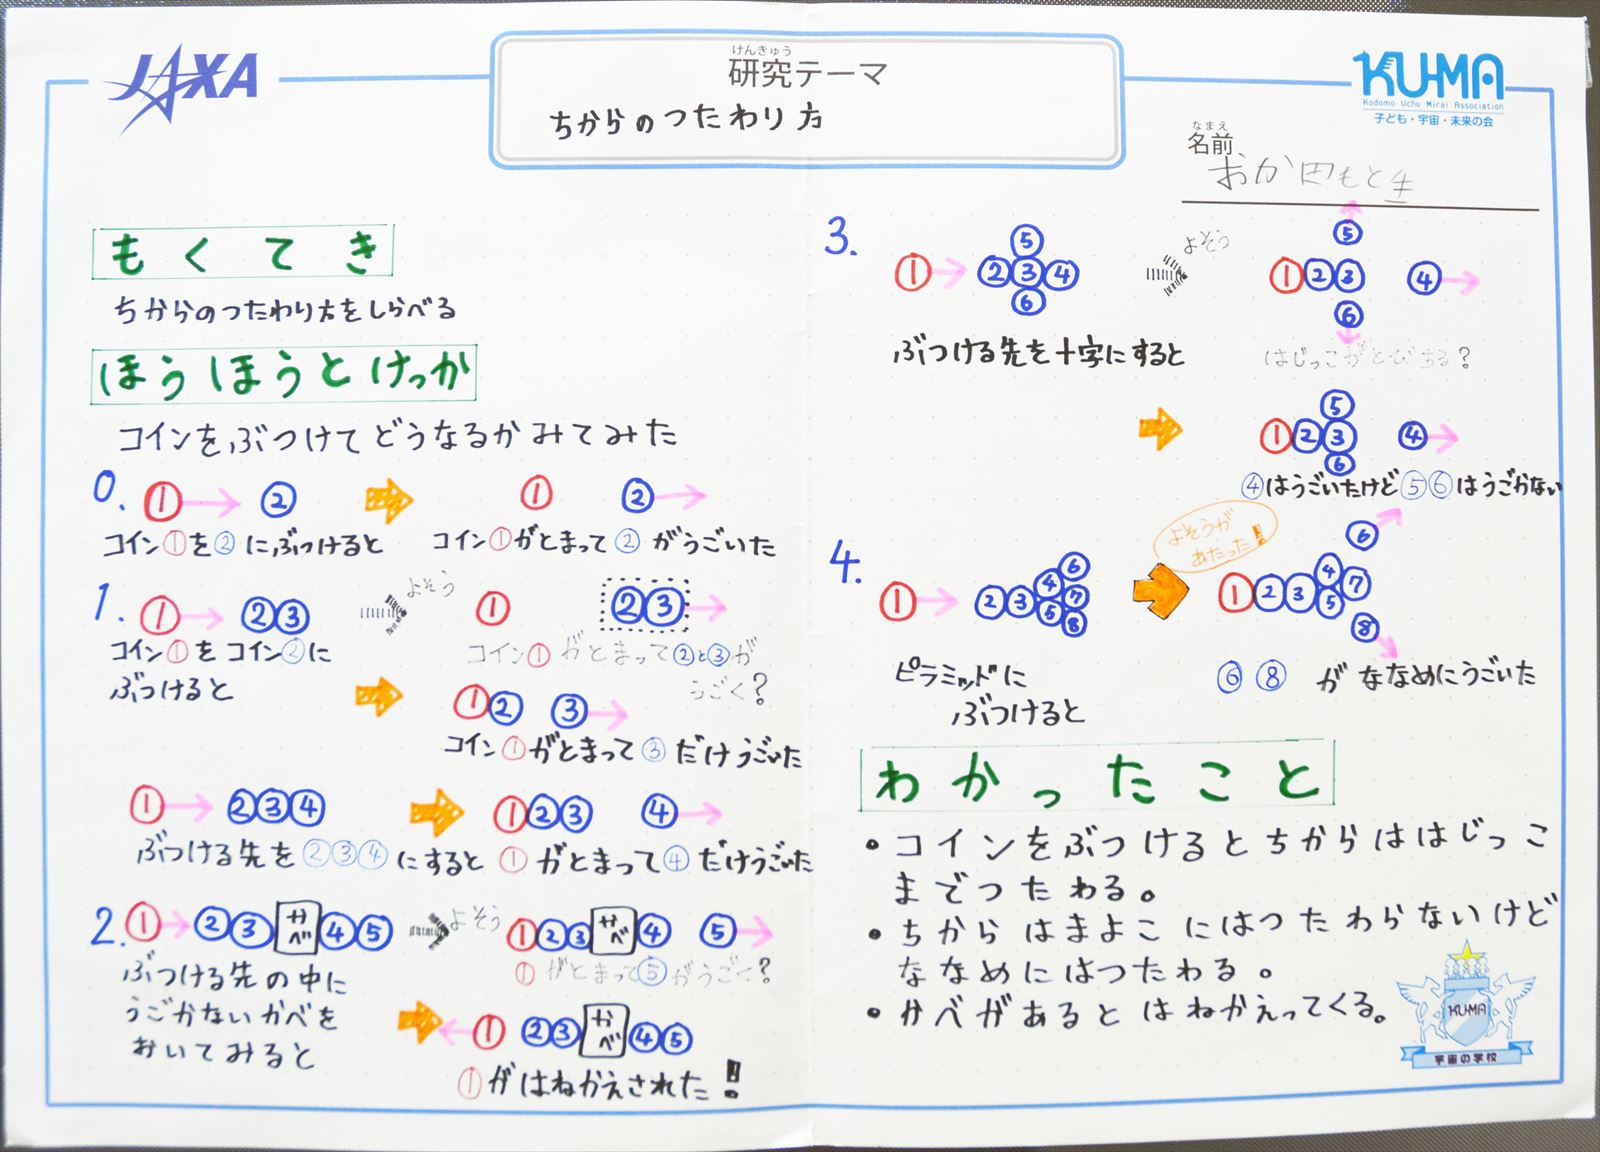 JAXA
けんきゅう
研究テーマ
ちからのつたわり方
KU-MA
Kodomo Uchu Mirai Association
子ども・宇宙・未来の会
なまえ
名前
おか田もとき
もくてき
ちからのつたわり方をしらべる
ほうほうとけっか
コインをぶつけてどうなるかみてみた
0. ① ② ① ②
コイン①を②にぶつけると
コイン①がとまって②がうごいた
1. ① ②③ よそう ① ②③
コイン①をコイン②に
ぶつけると
コイン①がとまって②と③が
うごく?
①② ③
コイン①がとまって③だけうごいた
① ②③④ ①②③ ④
ぶつける先を②③④にすると
①がとまって④だけうごいた
2. ① ②③かべ④⑤ よそう ①②③かべ④ ⑤
ぶつける先の中に
うごかないかべを
おいてみると
①がとまって⑤がうごく?
① ②③かべ④⑤
①がはねかえされた!
3. ① ⑤②③④⑥ よそう ⑤①②③④⑥
ぶつける先を十字にすると
はじっこがとびちる?
⑤①②③④⑥
④はうごいたけど⑤⑥はうごかない
よそうが
あたった!
4. ① ②③④⑤⑥⑦⑧ ①②③④⑤⑥⑦⑧
ピラミッドに
ぶつけると
⑥⑧がななめにうごいた
わかったこと
• コインをぶつけるとちからははじっこ
までつたわる。
• ちからはまよこにはつたわらないけど
ななめにはつたわる。
• かべがあるとはねかえってくる。
KU-MA
宇宙の学校